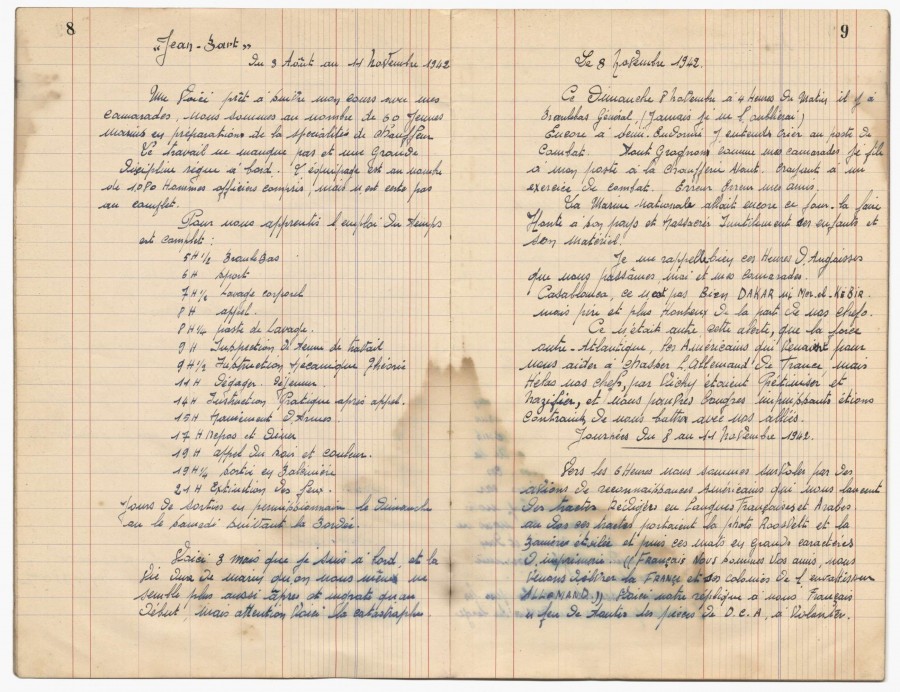 8
"Jean-Bart"
Du 3 Août au 11 Novembre 1942
Me Voici prêt à suivre mon cours avec mes
camarades, nous sommes au nombre de 60 Jeunes
marins en préparations de la spécialités de Chauffeur
Le travail ne manque pas et une Grande
Discipline règne à bord. L'équipage est au nombre
de 1080 Hommes officiers compris, mais n'est certe pas
au complet.
Pour nous apprentis l'emploi Du temps
est complet :
5H 1/2 Branle Bas
6H sport
7H 1/2 Lavage corporel
8H appel.
8H 1/4 poste de Lavage.
9H Inspection de tenue de travail
9H 1/2 Instruction Mécanique théorie
11H Dégager. Déjeuner.
14H Instruction Pratique après appel.
15H Maniement D'Armes
17H Repos et Dîner
19H appel Du soir et couleur.
19H 1/4 sortie en Baleinière
21H Extinction Des feux.
Jours de sorties en permissionnaire le Dimanche
ou le samedi suivant la Bordée.
Voici 3 mois que je suis à bord, et la
Vie Dure De marin qu'on nous mène ne
semble plus aussi âpres et ingrate qu'au
Début, mais attention Voici la catastrophe
9
Le 8 Novembre 1942.
Ce Dimanche 8 Novembre à 4 Heures Du Matin il y a
Branlebas Général. (Jamais je ne l'oublierai)
Encore à demi Endormi J'entends crier au poste de
Combat. Tout Grognons comme mes camarades je file
à mon poste à la Chaufferie Avant. Croyant à un
exercice De combat. Erreur Erreur mes amis,
La Marine Nationale allait encore ce jour-là faire
Honte à son pays et Massacrer Inutilement ses enfants et
son matériel.
Je me rappelle bien ces Heures D'Angoisses
que nous passâmes moi et mes camarades.
Casablanca, ce n'est pas Bien DAKAR ni Mers-el-KéBIR.
mais pire et plus Honteux De la part De nos chefs.
Ce n'était autre cette alerte, que la force
outre-Atlantique, Les Américains qui Venaient pour
nous aider à Chasser L'Allemand De France mais
Hélas nos chefs, par Vichy étaient Crétiniser et
Nazifier, et nous pauvres bougres impuissants étions
Contraint De nous battre avec nos alliés.
Journées Du 8 au 11 Novembre 1942.
Vers les 6 Heures nous sommes survoler par Des
avions de reconnaissances Américains qui nous lancent
Des tracts Rédigées en Langues Françaises et Arabes
au dos ces tracts portaient la photo Roosvelt et la
Bannière étoilée et puis ces mots en grands caractères
D'imprimerie (( FRANÇAIS Nous sommes Vos amis, nous
Venons Délivrer la FRANCE et ses Colonies De L'envahisseur
ALLEMAND )) Voici notre réplique à nous Français
feu De toutes les pièces De D.C.A, à Volonter.